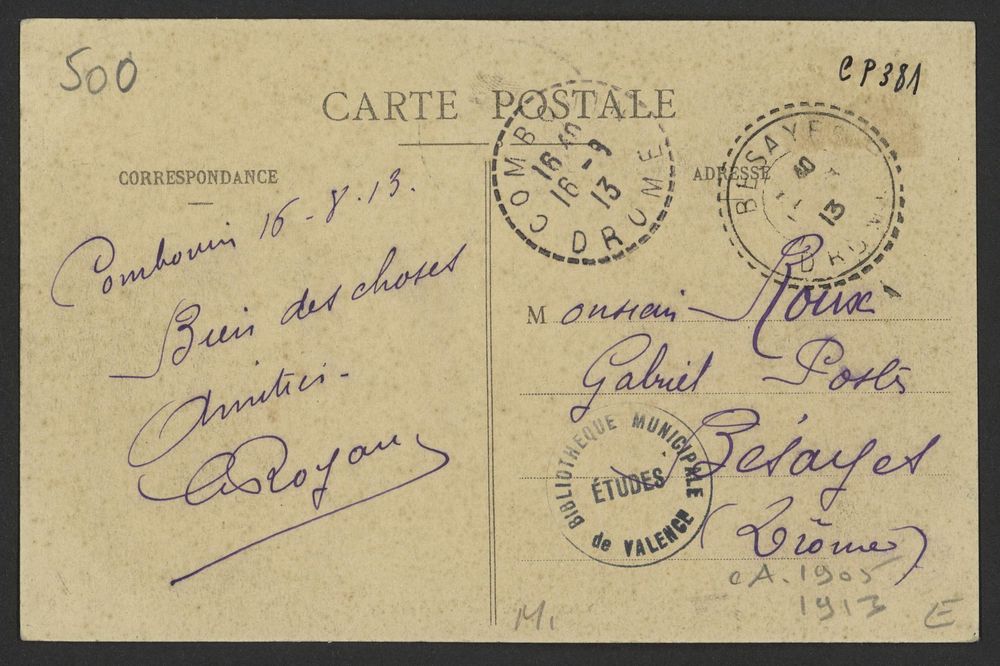 500
CP381
CARTE POSTALE
CORRESPONDANCE
ADRESSE
COMBO
16 40
16 -8
13
DROME
BESAYES
40
13
DROME
Combovin 16-8.13.
Bien des choses
Amitiés
Royan
Monsieur Roux
Gabriel Postes
Bésayes
(Drôme)
BIBLIOTHEQUE MUNICIPALE
ÉTUDES
de VALENCE
CA. 1905
1913
E